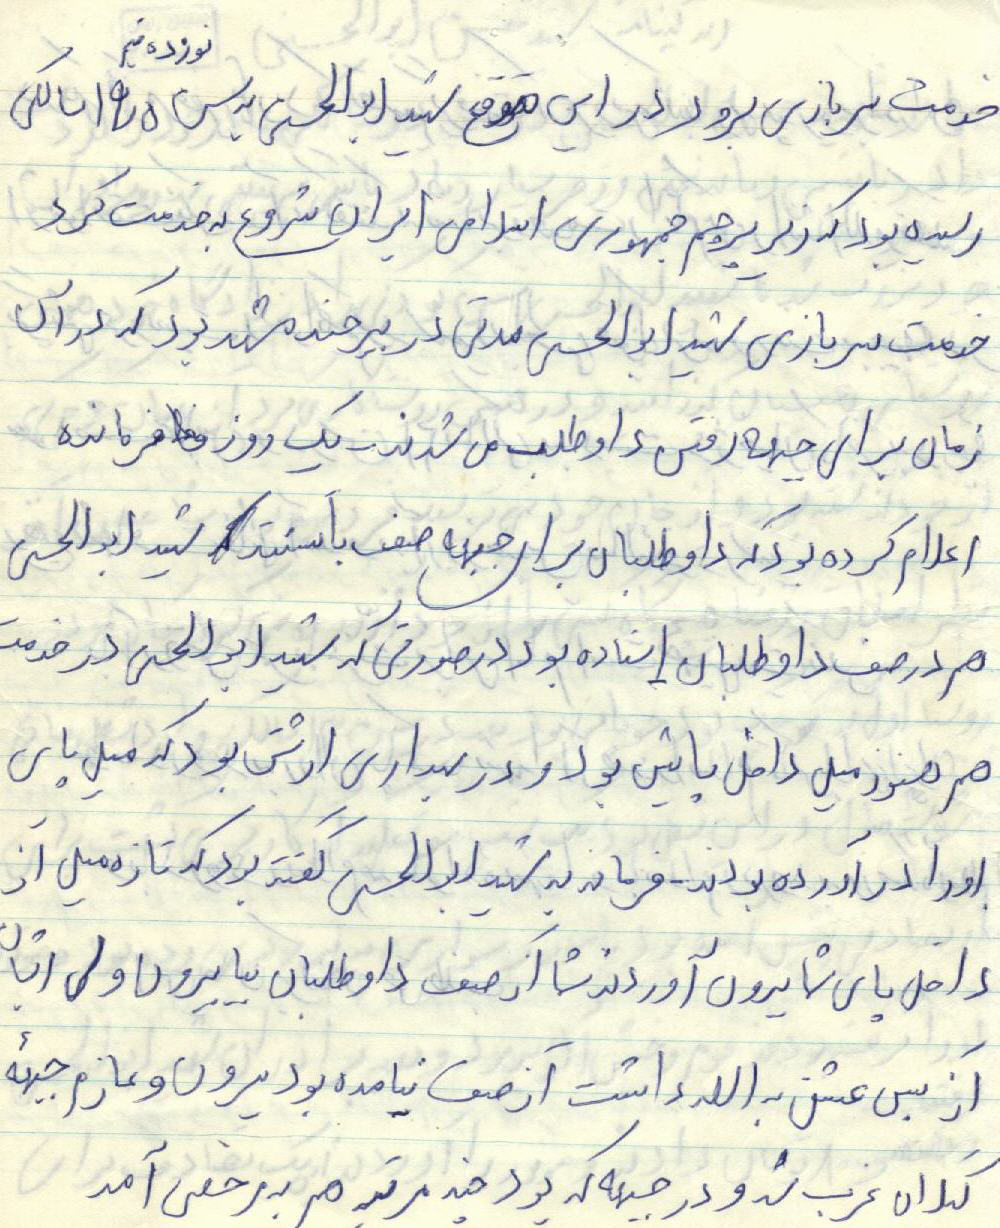 نوزده نیم
خدمت سربازی برود در این موقع شهید ابوالحسن به سن ۱۹/۵ سالگی
رسیده بود که زیر پرچم جمهوری اسلامی ایران شروع به خدمت کرد
خدمت سربازی شهید ابوالحسن مدتی در بیرجند مشهد بود که در آن
زمان برای جبهه رفتن داوطلب می شدند - یک روز فرمانده
اعلام کرده بود که داوطلبان برای جبهه صف بأستند شهید ابوالحسن
هم در صف داوطلبان إستاده بود در صورتی که شهید ابوالحسن در خدمت
هم هنوز میل داخل پایش بود و در بهداری ارتش بود که میل پای
اورا در آورده بودند - فرمانده به شهید ابوالحسن گفته بود که تازه میل از
داخل پای شما بیرون آوردند شما از صف داوطلبان بیا بیرون ولی ایشان
از بس عشق به الله داشت از صف نیامده بود بیرون و عازم جبههٔ
گیلان غرب شد و در جبهه که بود چند مرتبه هم به مرخصی آمد